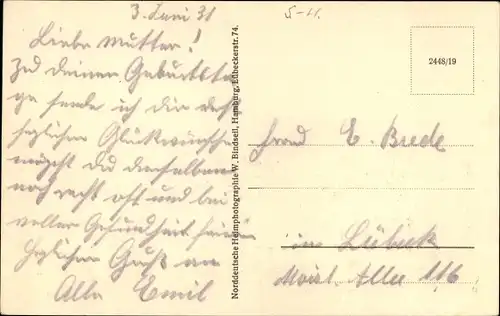 3. Juni 31
Liebe Mutter!
Zu deinem Geburtsta-
ge sende ich dir
herzlichen Glückwünsche
möchst Du denselben
noch recht oft und bei
voller Gesundheit feiern
Herzlichen Gruß an
Alle Emil
Norddeutsche Heimphotographie W. Bindseil, Hamburg, Lübeckerstr. 74.
2448/19
E. Brede
in Lübeck
Moisl. Allee 116